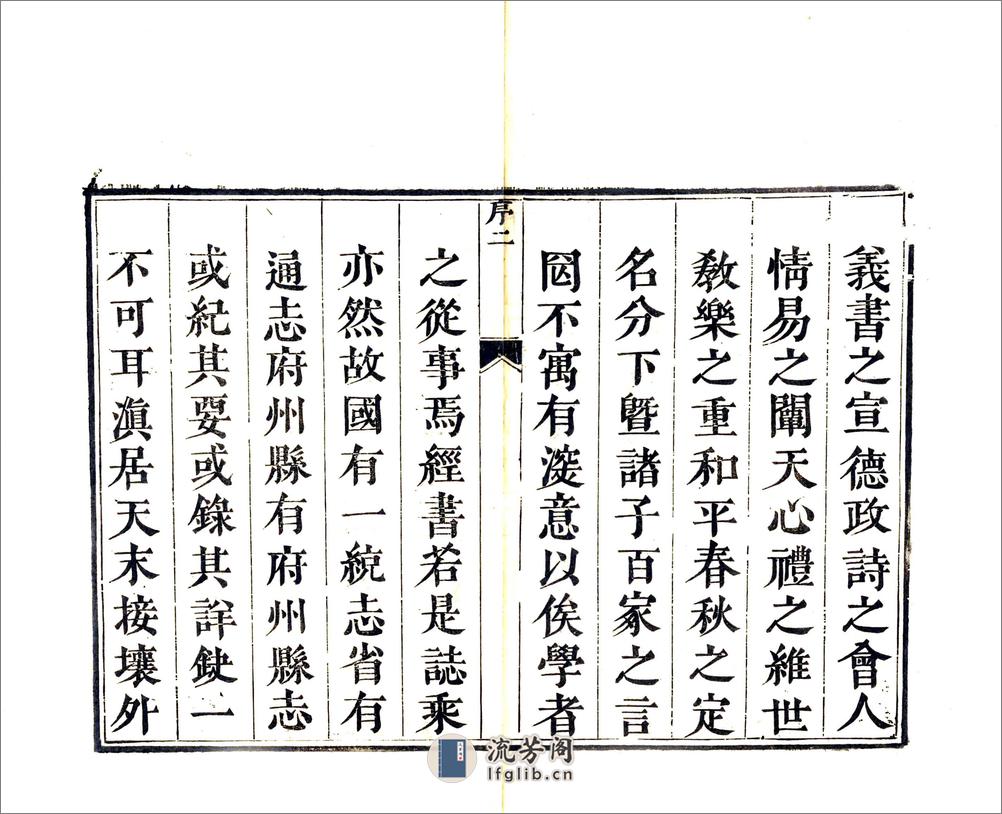 義書之宣德政詩之會人
情易之闡天心禮之維世
敎樂之重和平春秋之定
名分下曁諸子百家之言
罔不寓有深意以俟學者
序二
之從事焉經書若是誌乘
亦然故國有一統志省有
通志府州縣有府州縣志
或紀其要或錄其詳缺一
不可耳滇居天末接壤外
流芳阁
lfglib.cn